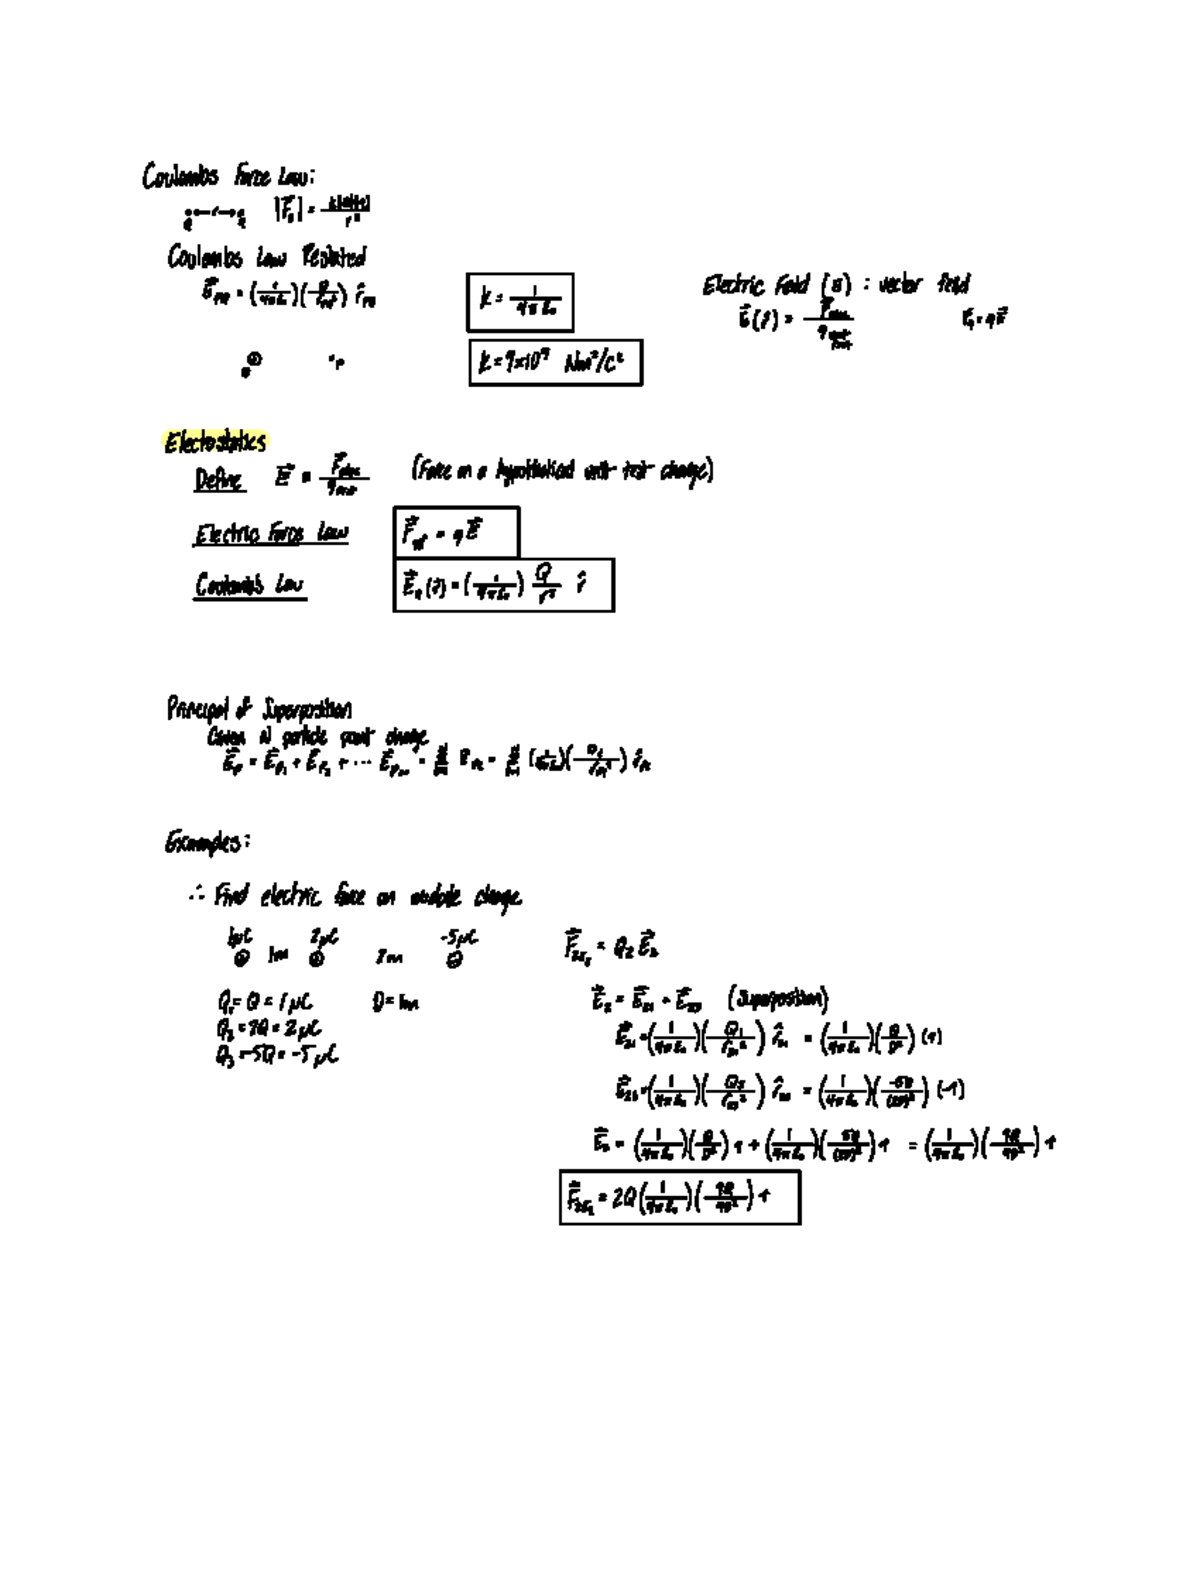 Coulombs Force Law:
|F| = k|Q||q| / r²
Coulombs Law Restated
E = (1/4πε₀)(Q/r²) r̂
k = 1/4πε₀
k = 9×10⁹ Nm²/C²
Electric Field (E) : vector field
E(r) = F / q test
F = qE
Electostatics
Define E = F / q (Force on a hypothetical unit test charge)
Electric Force Law F = qE
Coulombs Law E(r) = (1/4πε₀) Q/r² r̂
Principal of Superposition
Given N particle point charge
E = E + E + ···
Examples:
∴ Find electric force on middle charge
1μC 1m 2μC 2m -5μC
Q₁ = Q = 1μC D = 1m
Q₂ = 2Q = 2μC
Q₃ = -5Q = -5μC
F = Q₂ E₂
E₂ = E₂₁ + E₂₃ (Superposition)
E₂₁ = (1/4πε₀)(Q₁/r₂₁²) r̂₂₁ = (1/4πε₀)(Q/D²) (+)
E₂₃ = (1/4πε₀)(Q₃/r₂₃²) r̂₂₃ = (1/4πε₀)(-5Q/(2D)²) (-)
E₂ = (1/4πε₀)(Q/D²) + (1/4πε₀)(5Q/(2D)²) = (1/4πε₀)(9Q/4D²)
F = 2Q(1/4πε₀)(9Q/4D²)